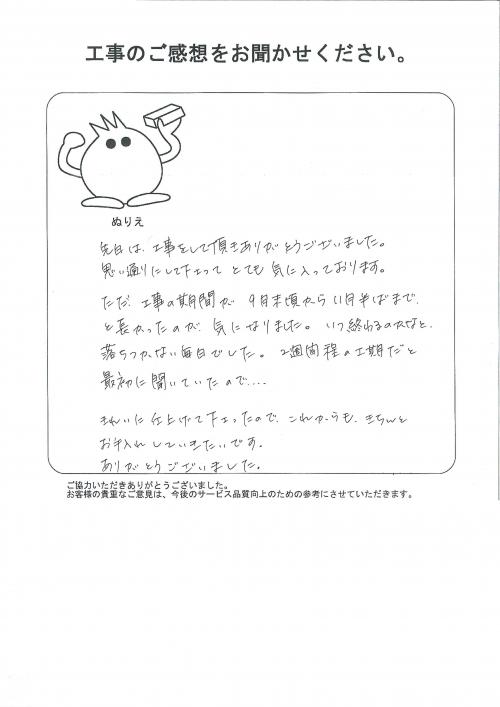 工事のご感想をお聞かせください。
ぬりえ
先日は、工事をして頂きありがとうございました。
思い通りにして下さって とても 気に入っております。
ただ、工事の期間が 9月末頃から 11月半ばまで、
と長かったのが、気になりました。いつ終わるのかなと、
落ちつかない毎日でした。2週間程の工期だと
最初に聞いていたので‥‥
きれいに仕上げて下さったので、これからも、きちんと
お手入れしていきたいです。
ありがとうございました。
ご協力いただきありがとうございました。
お客様の貴重なご意見は、今後のサービス品質向上のための参考にさせていただきます。